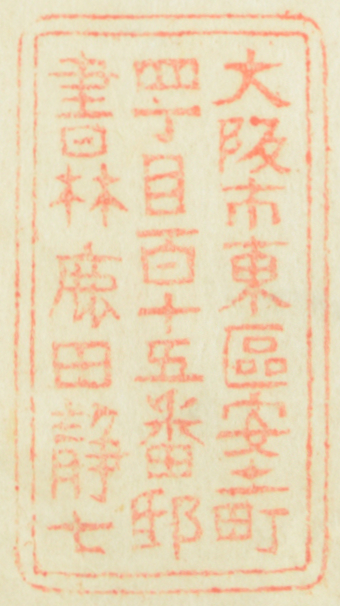 大阪市東區安土町
四丁目百十五番邸
書林 鹿田静七